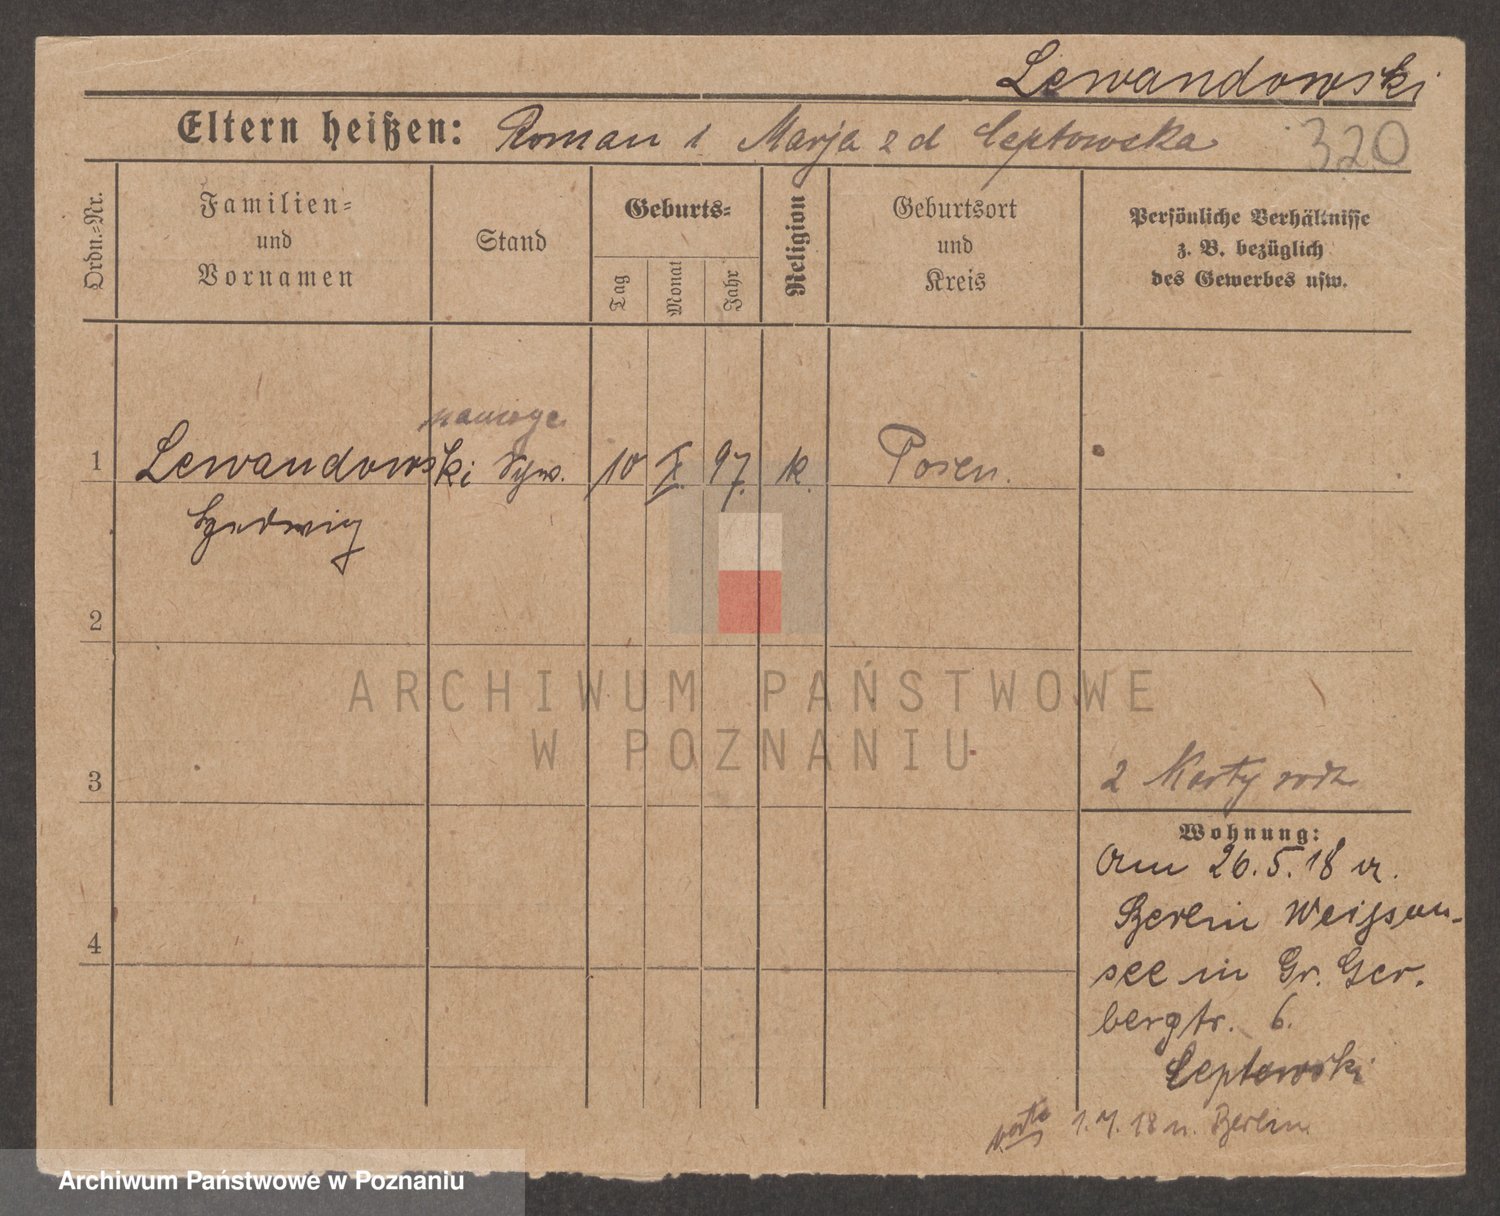 Lewandowski
Eltern heißen: Roman i Marja z d Ceptowska 320
Ordn.=Nr.
Familien=
und
Vornamen
Stand
Geburts=
Tag
Monat
Jahr
Religion
Geburtsort
und
Kreis
Persönliche Verhältnisse
z. B. bezüglich
des Gewerbes usw.
1 Lewandowski 10 X. 97. k. Posen.
Hedwig
2
ARCHIWUM PAŃSTWOWE
W POZNANIU
3
2 Karty rodz
Wohnung:
Am 26.5.18 n.
Berlin Weißen-
see in Gr. Ger.
bergstr. 6.
Ceptowski
4
verte 1.7.18 n. Berlin
Archiwum Państwowe w Poznaniu